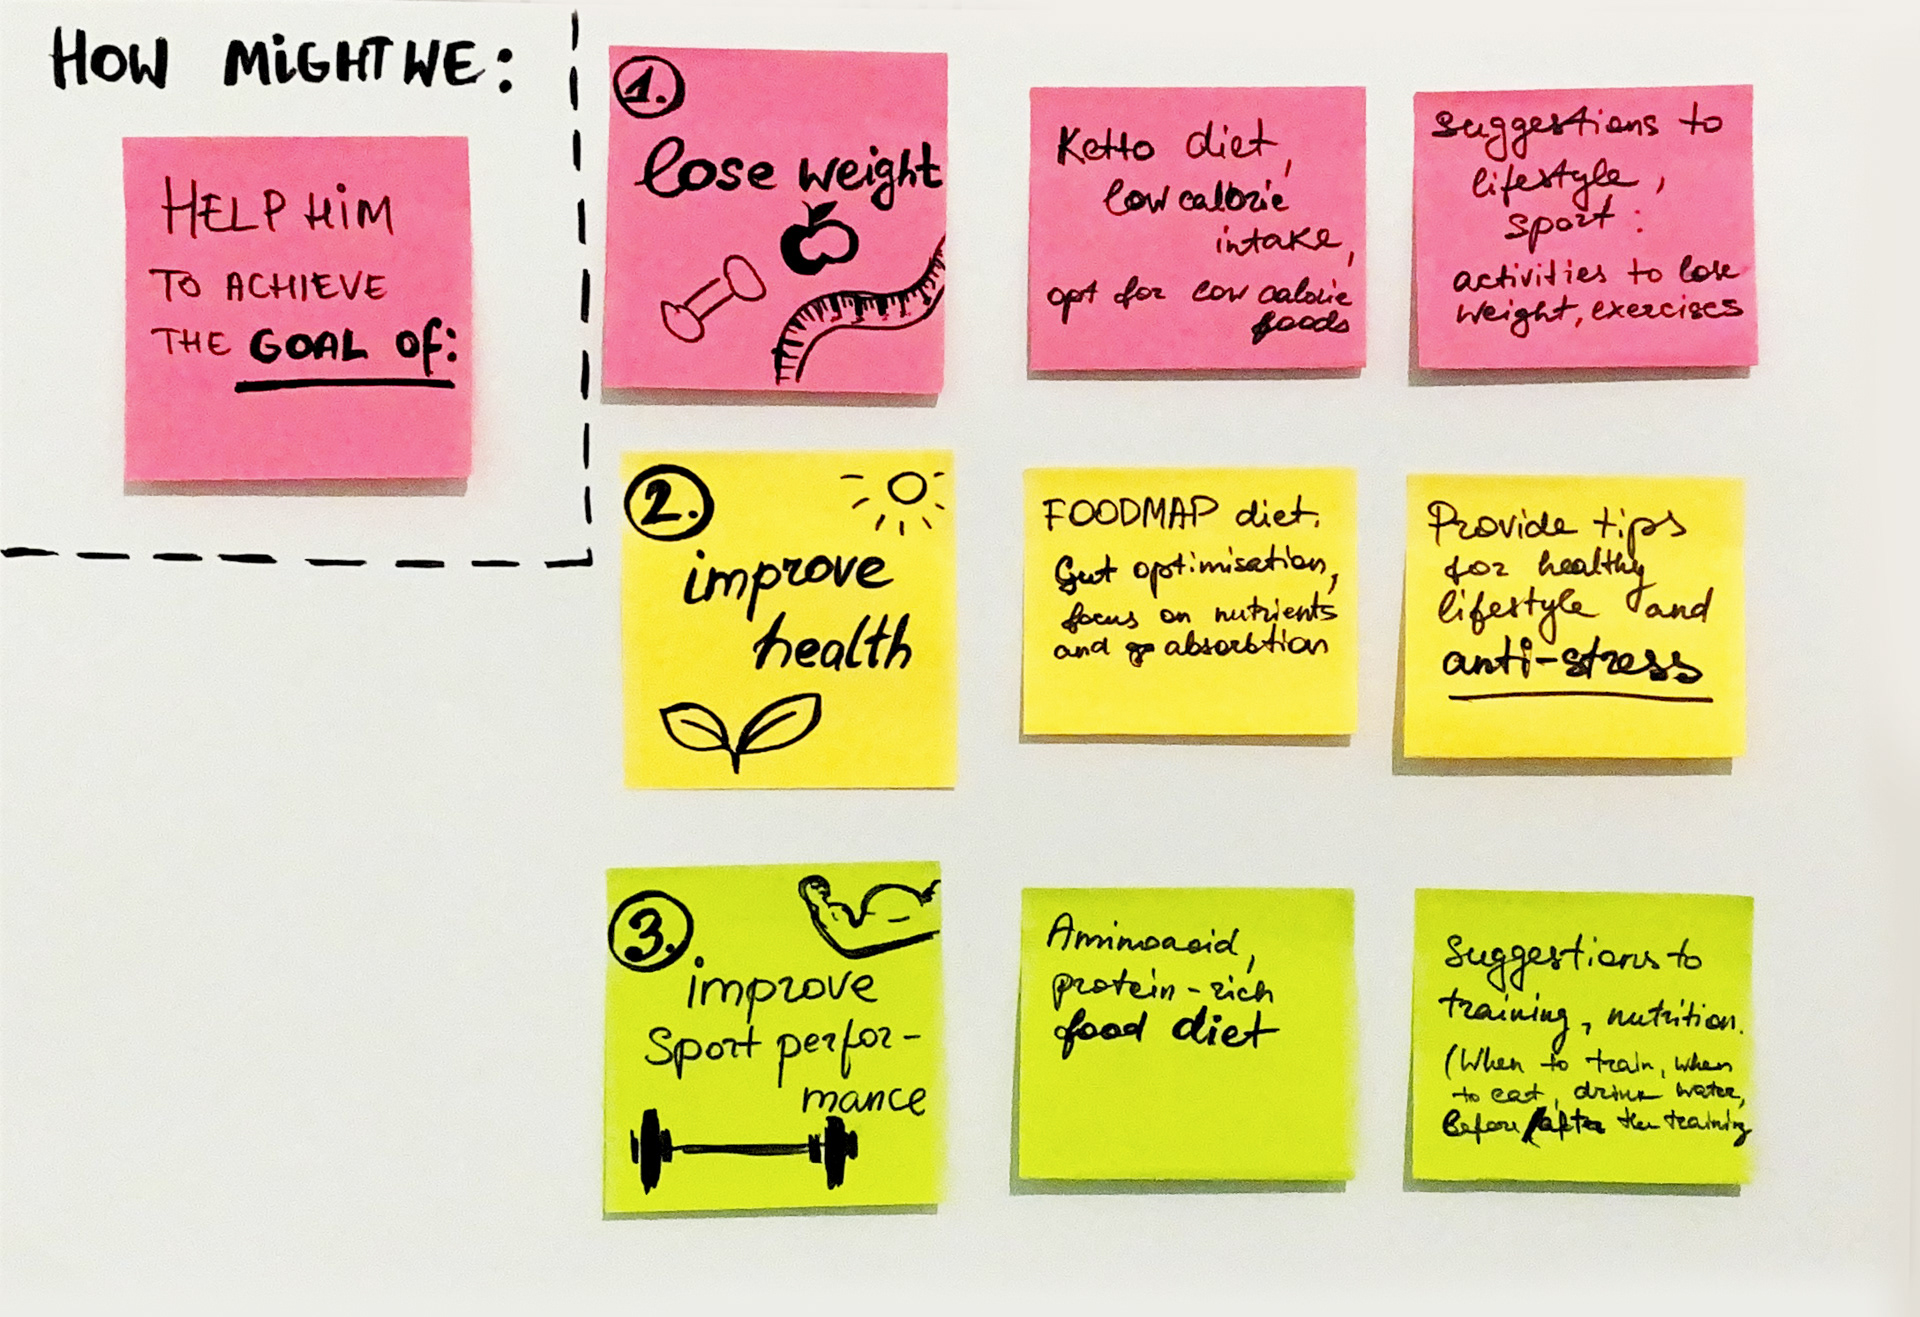 HOW MiGHT WE:
HELP HiM
TO ACHIEVE
THE GOAL Of:
1.
lose weight
Ketto diet,
low calorie
intake,
opt for low calorie
foods
Suggestions to
lifestyle,
sport:
activities to lose
weight, exercises
2.
improve
health
FOODMAP diet.
Gut optimisation,
focus on nutrients
and absorbtion
Provide tips
for healthy
lifestyle and
anti-stress
3.
improve
Sport perfor-
mance
Aminoacid,
protein-rich
food diet
Suggestions to
training, nutrition.
(When to train, when
to eat, drink water,
Before/after the training